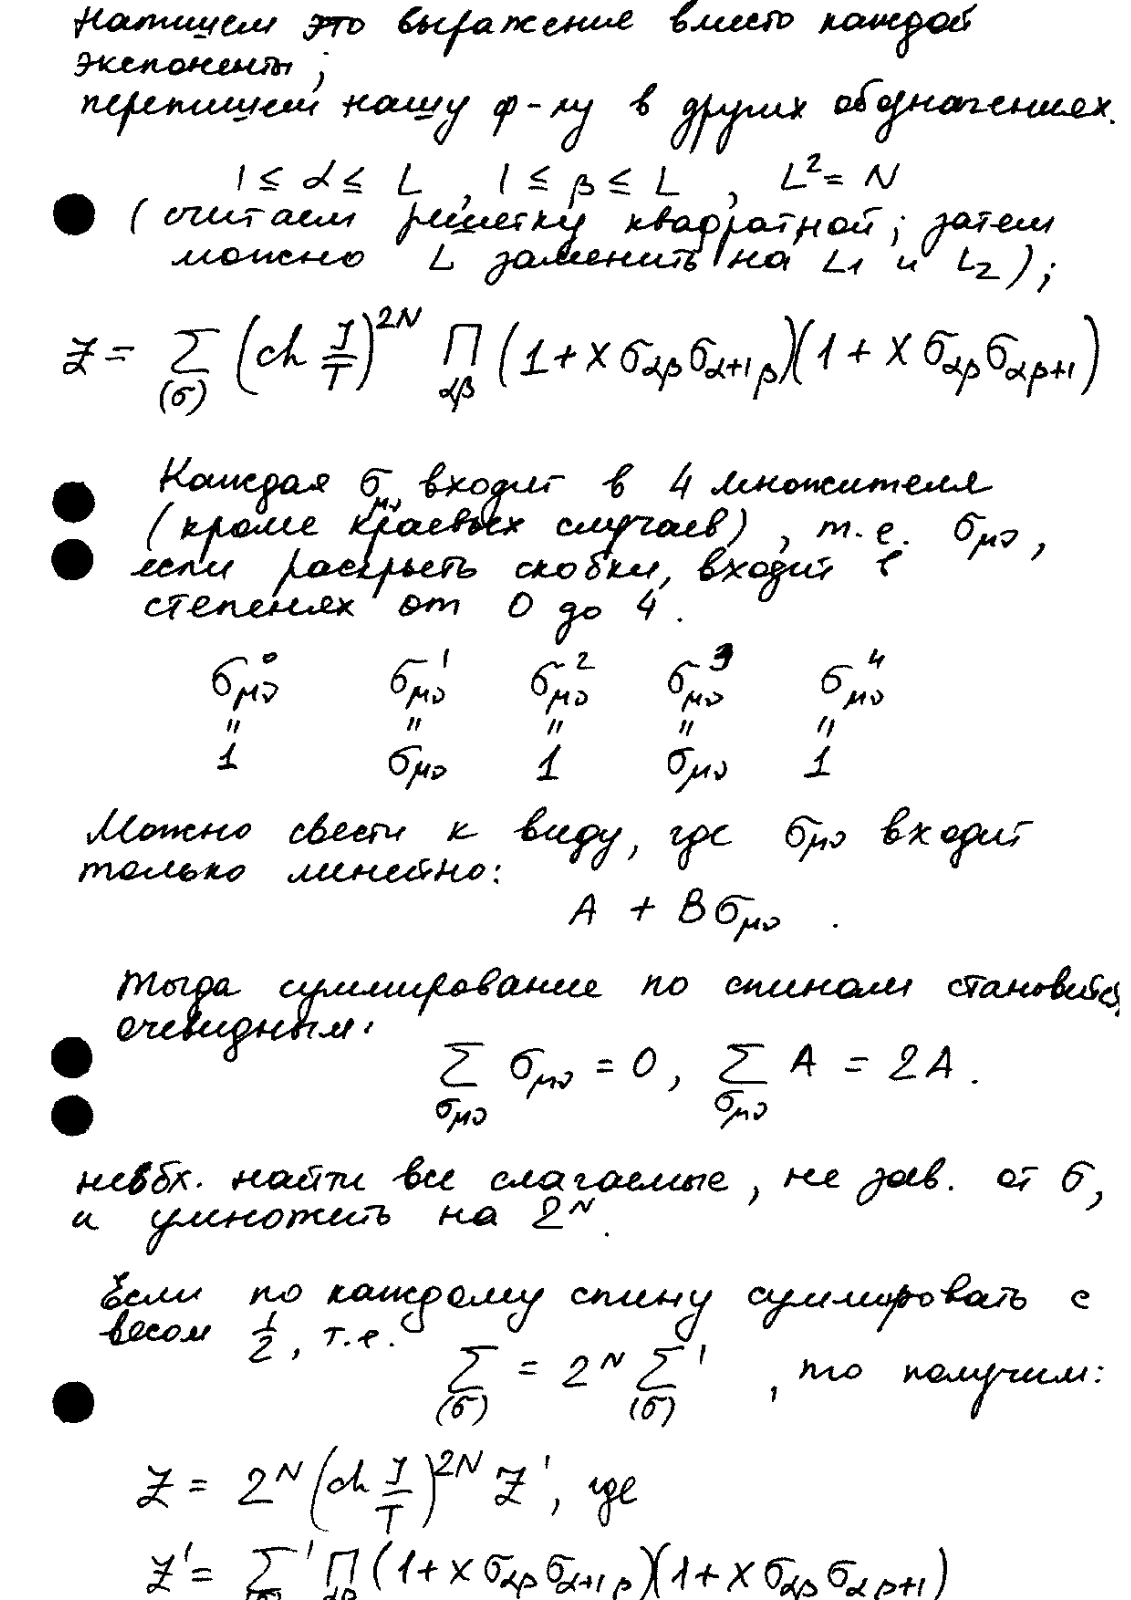 Напишем это выражение вместо каждой
экспоненты;
перепишем нашу ф-лу в других обозначениях.
1 ≤ α ≤ L , 1 ≤ β ≤ L , L² = N
(считаем решетку квадратной; затем
можно L заменить на L₁ и L₂);
Z = Σ_(σ) (ch J/T)^{2N} Π_{αβ} (1 + x σ_{αβ} σ_{α+1 β})(1 + x σ_{αβ} σ_{αβ+1})
Каждая σ_{μν} входит в 4 множителя
(кроме краевых случаев), т.е. σ_{μν},
если раскрыть скобки, входит в
степенях от 0 до 4.
σ_{μν}^0 σ_{μν}^1 σ_{μν}^2 σ_{μν}^3 σ_{μν}^4
" " " " "
1 σ_{μν} 1 σ_{μν} 1
Можно свести к виду, где σ_{μν} входит
только линейно:
A + Bσ_{μν} .
Тогда суммирование по спинам становится
очевидным:
Σ_{σ_{μν}} σ_{μν} = 0, Σ_{σ_{μν}} A = 2A.
необх. найти все слагаемые, не зав. от σ,
и умножить на 2^N.
Если по каждому спину суммировать с
весом 1/2, т.е.
Σ_(σ) = 2^N Σ'_(σ) , то получим:
Z = 2^N (ch J/T)^{2N} Z', где
Z' = Σ'_(σ) Π_{αβ} (1 + x σ_{αβ} σ_{α+1 β})(1 + x σ_{αβ} σ_{αβ+1})